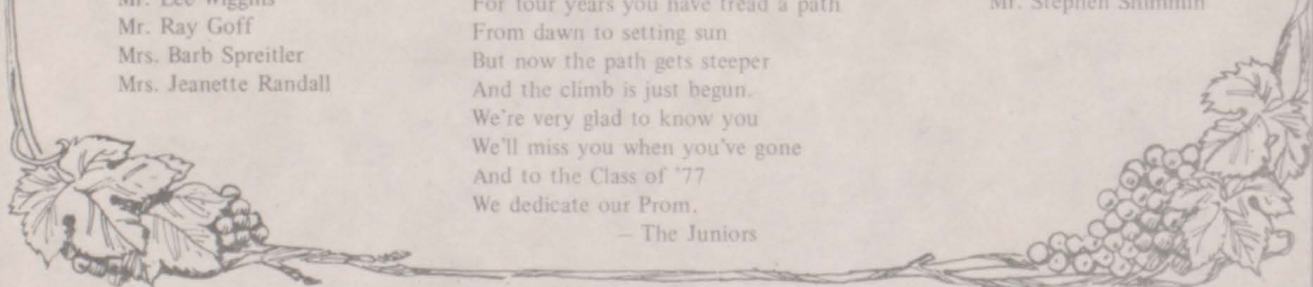 Mr. Lee Wiggins
Mr. Ray Goff
Mrs. Barb Spreitler
Mrs. Jeanette Randall
For four years you have tread a path
From dawn to setting sun
But now the path gets steeper
And the climb is just begun.
We're very glad to know you
We'll miss you when you've gone
And to the Class of '77
We dedicate our Prom.
– The Juniors
Mr. Stephen